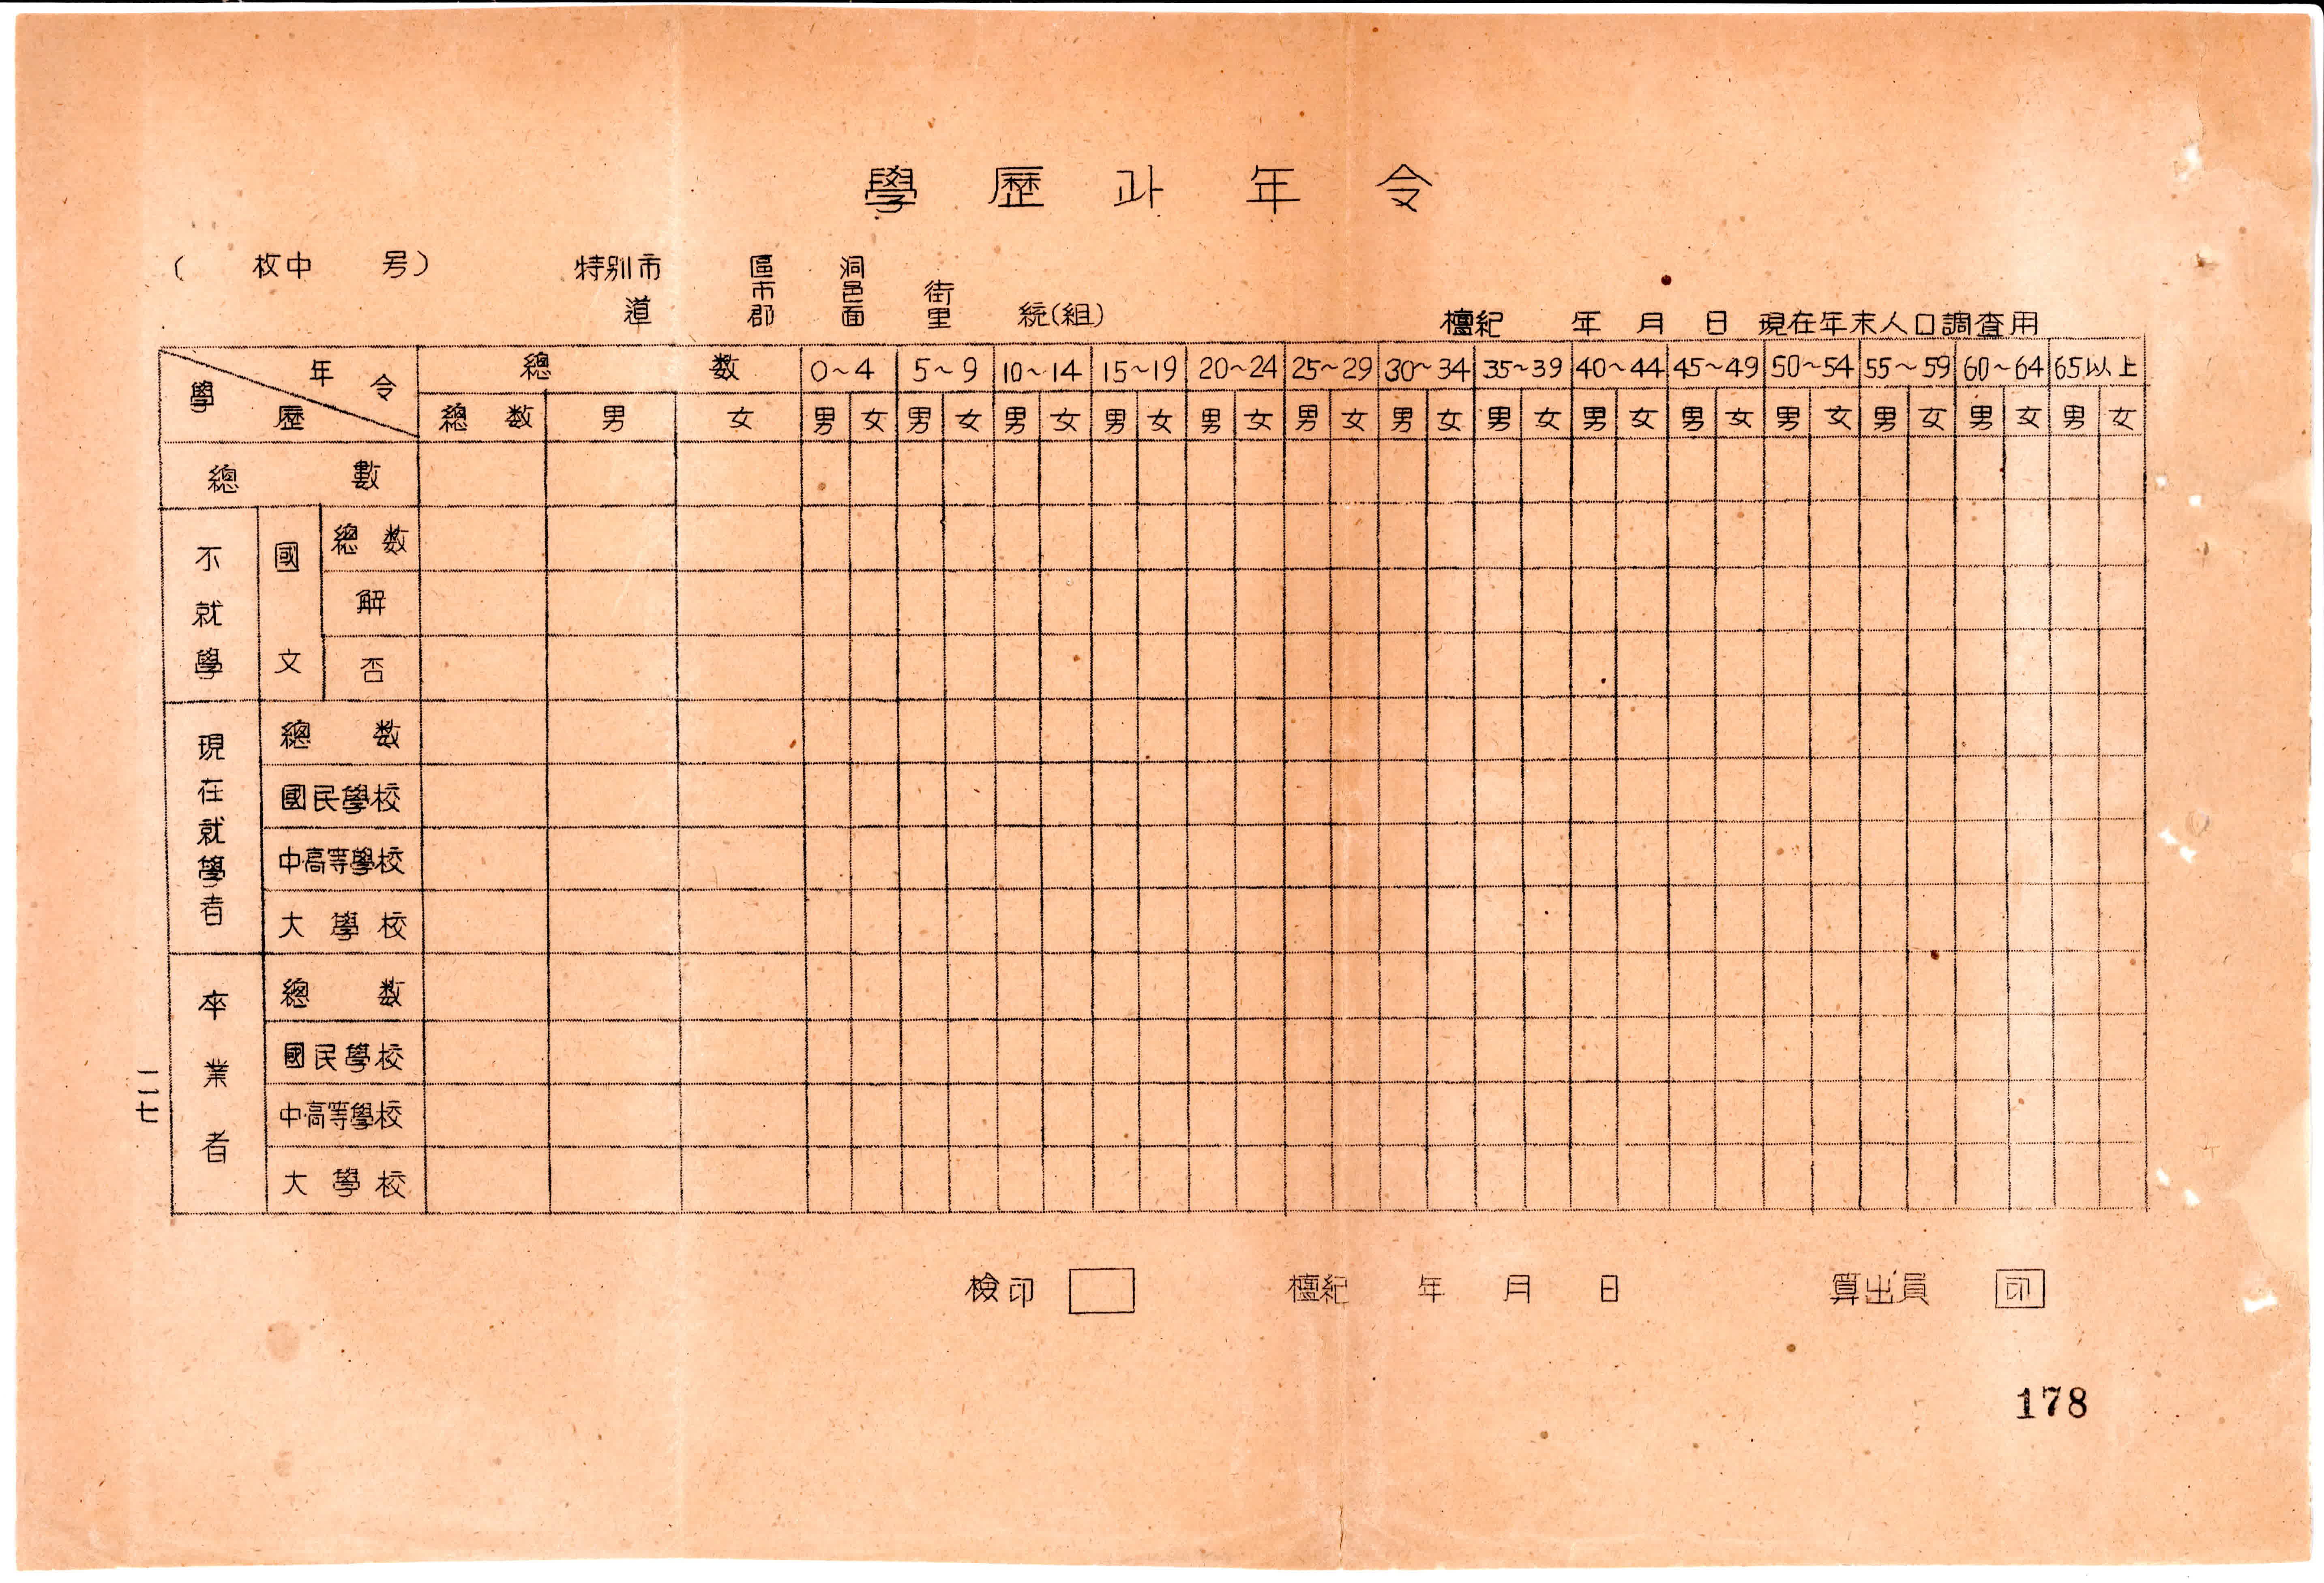 學歷과年令
(　枚中　号)
特別市 區 洞 街
道 市 邑 里 統(組)
郡 面
檀紀　年　月　日 現在年末人口調査用
年令 總数 0~4 5~9 10~14 15~19 20~24 25~29 30~34 35~39 40~44 45~49 50~54 55~59 60~64 65以上
學歷 總数 男 女 男 女 男 女 男 女 男 女 男 女 男 女 男 女 男 女 男 女 男 女 男 女 男 女 男 女 男 女
總數
不就學 國文 總数
解
否
現在就學者 總数
國民學校
中·高等學校
大學校
卒業者 總数
國民學校
中·高等學校
大學校
一二七
檢印　檀紀　年　月　日　算出員 印
178